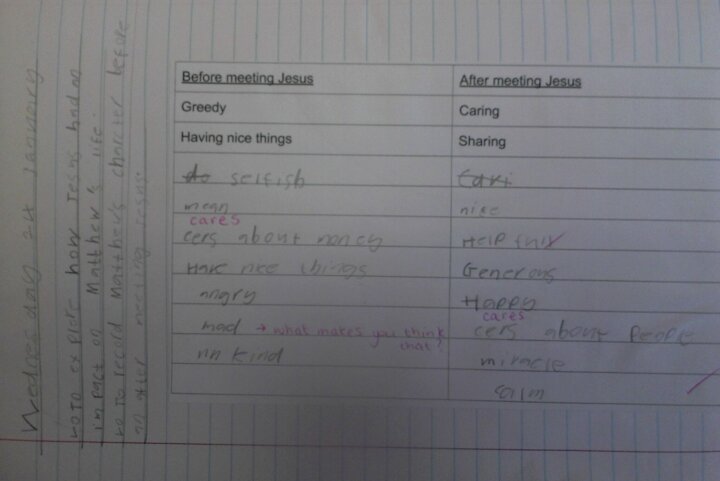 Wednesday 24 January
LO To explore how Jesus had an
impact on Matthew's life.
LO To record Matthew's character before
an after meeting Jesus.
Before meeting Jesus After meeting Jesus
Greedy Caring
Having nice things Sharing
do selfish cari
mean nice
cares
cers about money Helpfull
Have nice things Generous
angry Happy
cares
mad → what makes you think that? cers about people
un kind miracle
calm